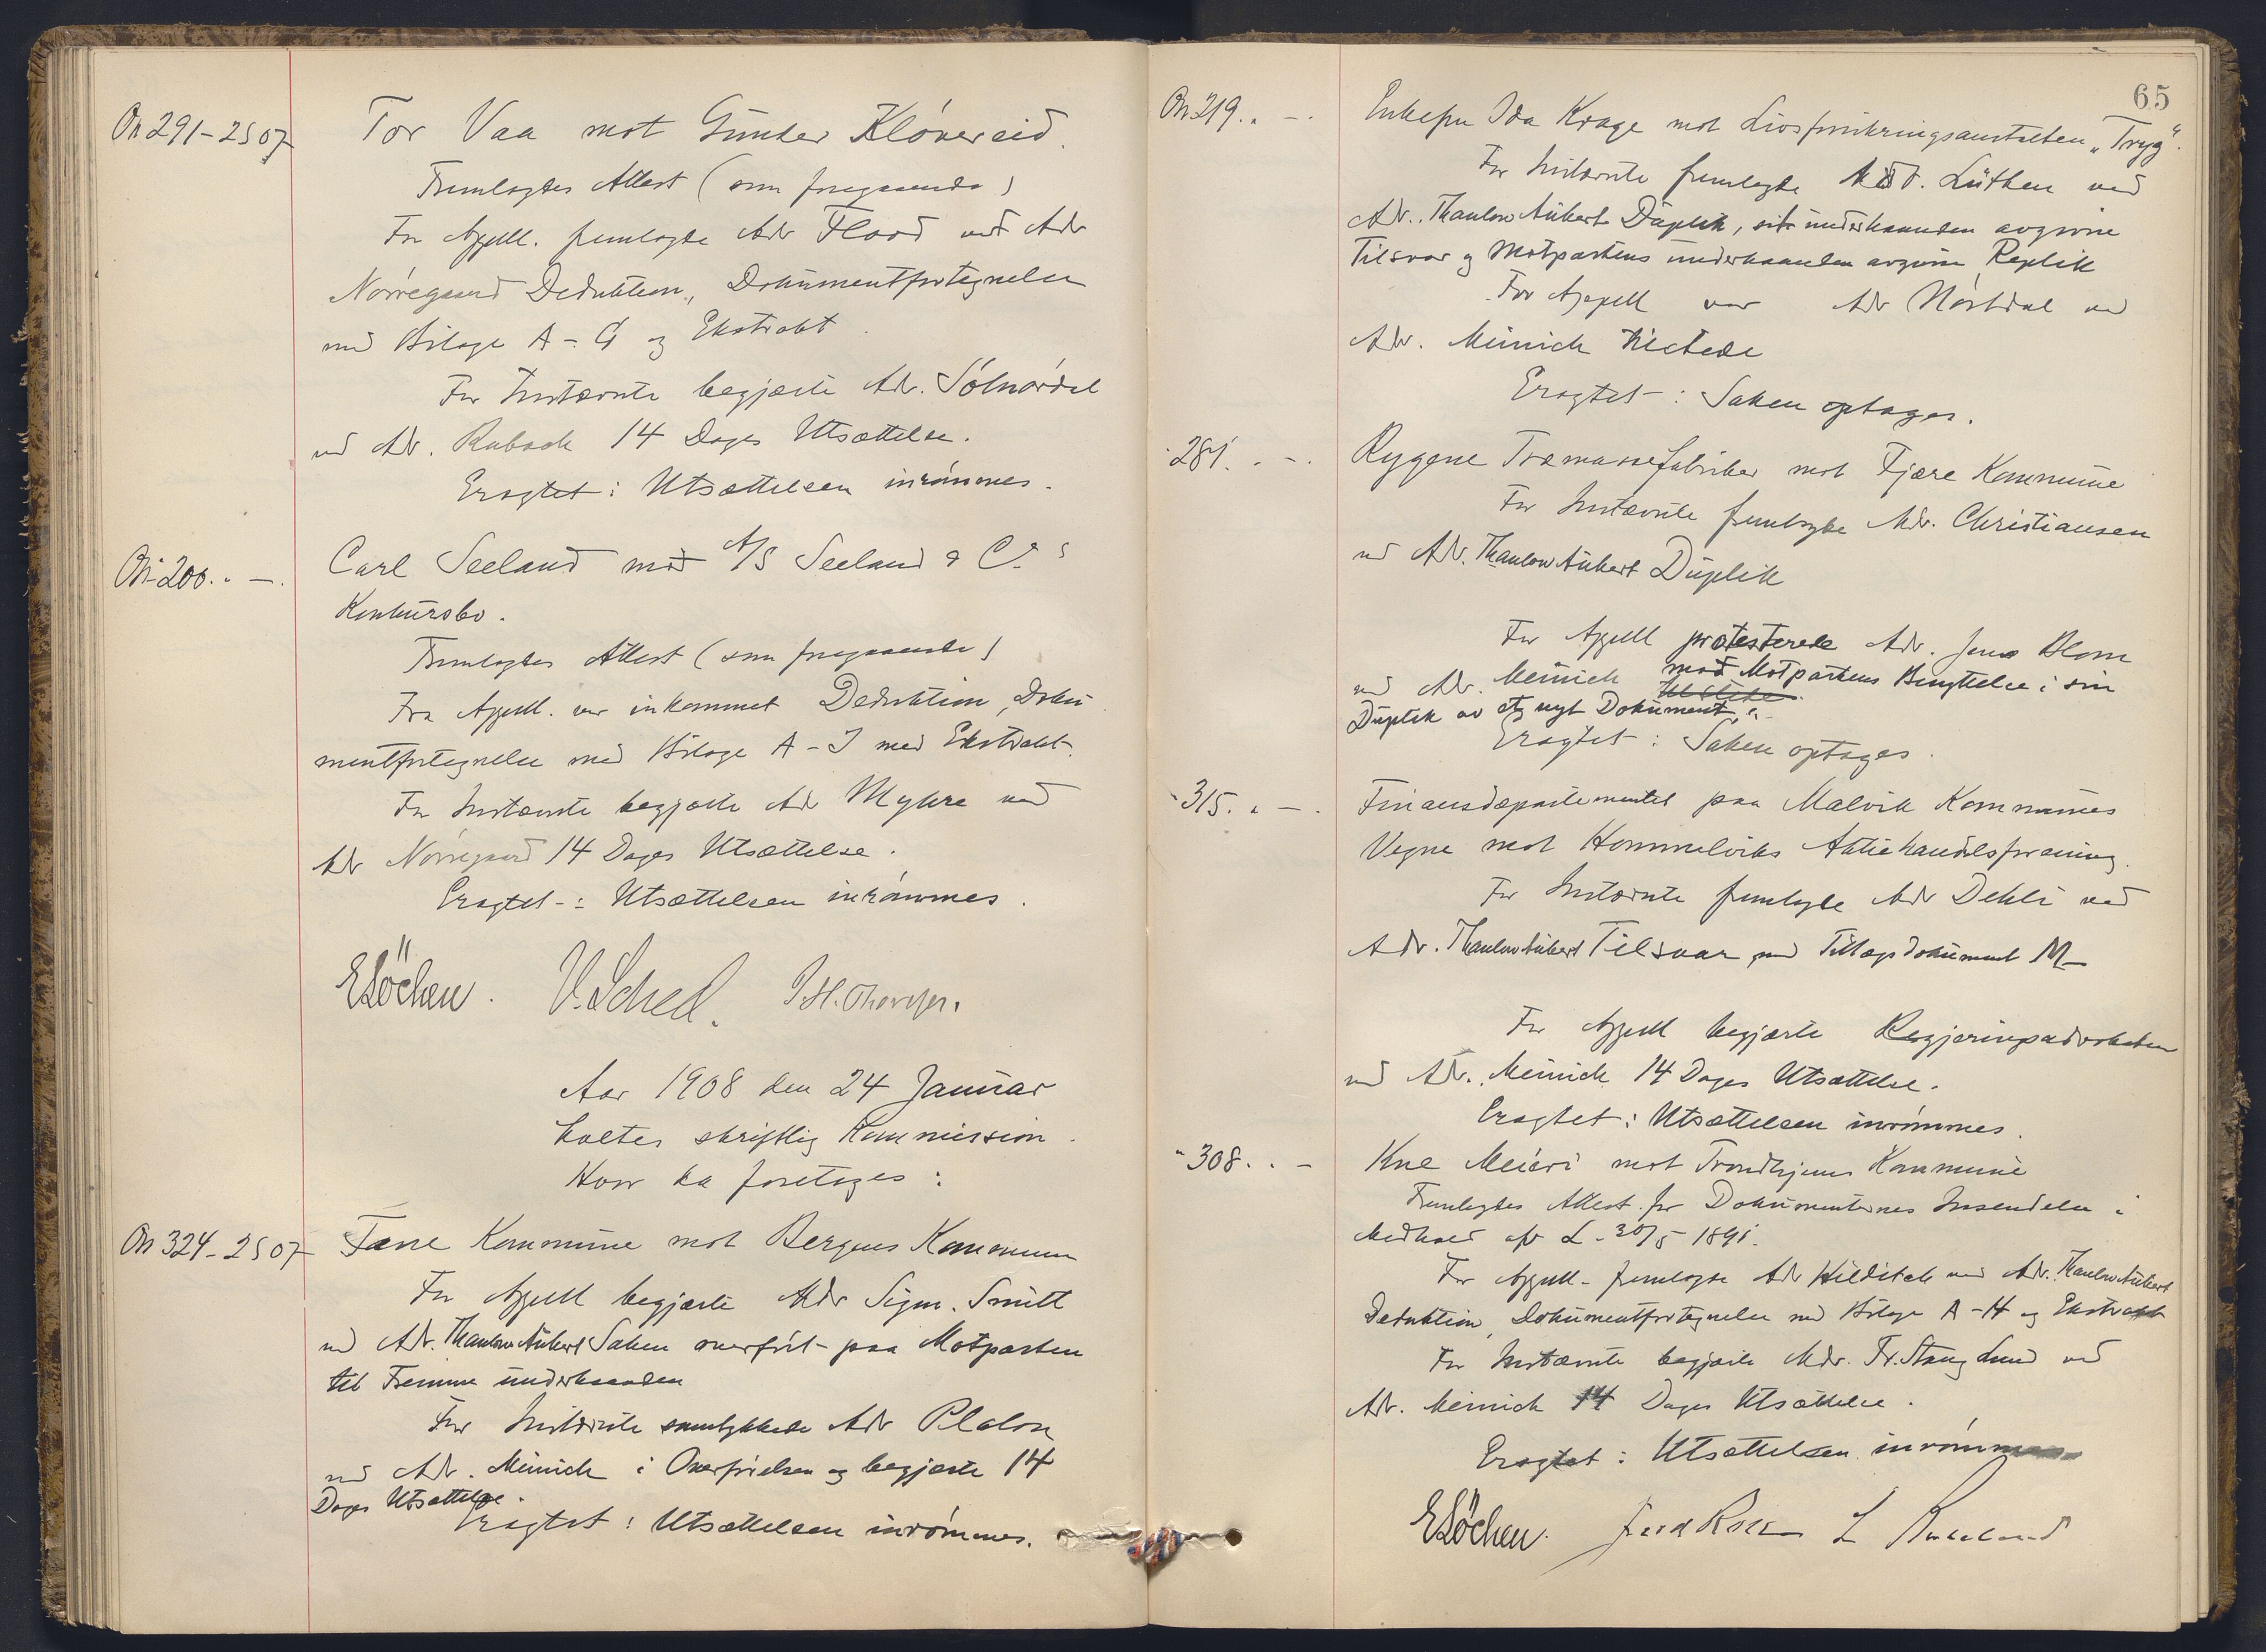 On 291 - 2 S 07
Tor Vaa mot Gunter Kløvereid.
Fremlagdes Attest (som foregaaende)
For Appell. fremlagde Adv Flood ved Adv
Nørregaard Deduktion, Dokumentfortegnelse
med Bilage A - G og Ekstrakt.
For Instævnte begjærte Adv. Sølnørdal
ved Adv. Rubach 14 Dages Utsættelse.
Eragtet: Utsættelsen inrømmes.
On 200. " —.
Carl Seeland mot A/S Seeland & Co s
Konkursbo.
Fremlagdes Attest (som foregaaende)
Fra Appell. var inkommet Deduktion, Doku
mentfortegnelse med Bilage A - I med Ekstrakt.
For Instævnte begjærte Adv Myhre ved
Adv Nørregaard 14 Dages Utsættelse.
Eragtet -: Utsættelsen inrømmes.
E Løchen. V. Scheel.
Aar 1908 den 24 Januar
holtes skriftlig Kommission.
Hvor da foretages:
On 324 - 2 S 07
Fane Kommune mot Bergens Kommune
For Appell begjærte Adv Sigm. Smitt
ved Adv. Thaulow Aubert Saken overført paa Motparten
til Fremme underhaanden
For Instævnte samtykkede Adv Platou
ved Adv. Meinich i Overførelsen og begjærte 14
Dages Utsættelse.
Eragtet: Utsættelsen inrømmes.
65
On 219. " —.
Enkefru Ida Krage mot Livsforsikringsanstalten „Tryg".
For Instævnte fremlagde Adv. Lüthen ved
Adv. Thaulow Aubert Duplik, sit underhaanden avgivne
Tilsvar og Motpartens underhaanden avgivne Replik
For Appell var Adv Hørtdal ved
Adv. Meinich tilstede
Eragtet -: Saken optages.
" 281. " —.
Rygene Træmassefabriker mot Fjære Kommune
For Instævnte fremlagde Adv. Christiansen
ved Adv. Thaulow Aubert Duplik
For Appell protesterede Adv. Jens Blom
ved Adv. Meinich mod Motpartens Benyttelse i sin
tilstede.
Duplik av et nyt Dokument.
Eragtet: Saken optages.
" 315. " —.
Finansdepartementet paa Malvik Kommunes
Vegne mot Hommelviks Aktiehandelsforening.
For Instævnte fremlagde Adv Dehli ved
Adv. Thaulow Aubert Tilsvar med Tillægsdokument M—
For Appell begjærte Regjeringsadvokaten
ved Adv. Meinich 14 Dages Utsættelse.
Eragtet: Utsættelsen inrømmes.
" 308. " —
Kne Meieri mot Trondhjems Kommune
Fremlagdes Attest for Dokumenternes Insendelse i
Medhold af L. 30/5 1891.
For Appell. fremlagde Adv Hilditch ved Adv. Thaulow Aubert
Deduktion, Dokumentfortegnelse med Bilage A - H og Ekstrakt
For Instævnte begjærte Adv. Fr. Stang Lund ved
Adv. Meinich 14 Dages Utsættelse.
Eragtet: Utsættelsen inrømmes
E Løchen.